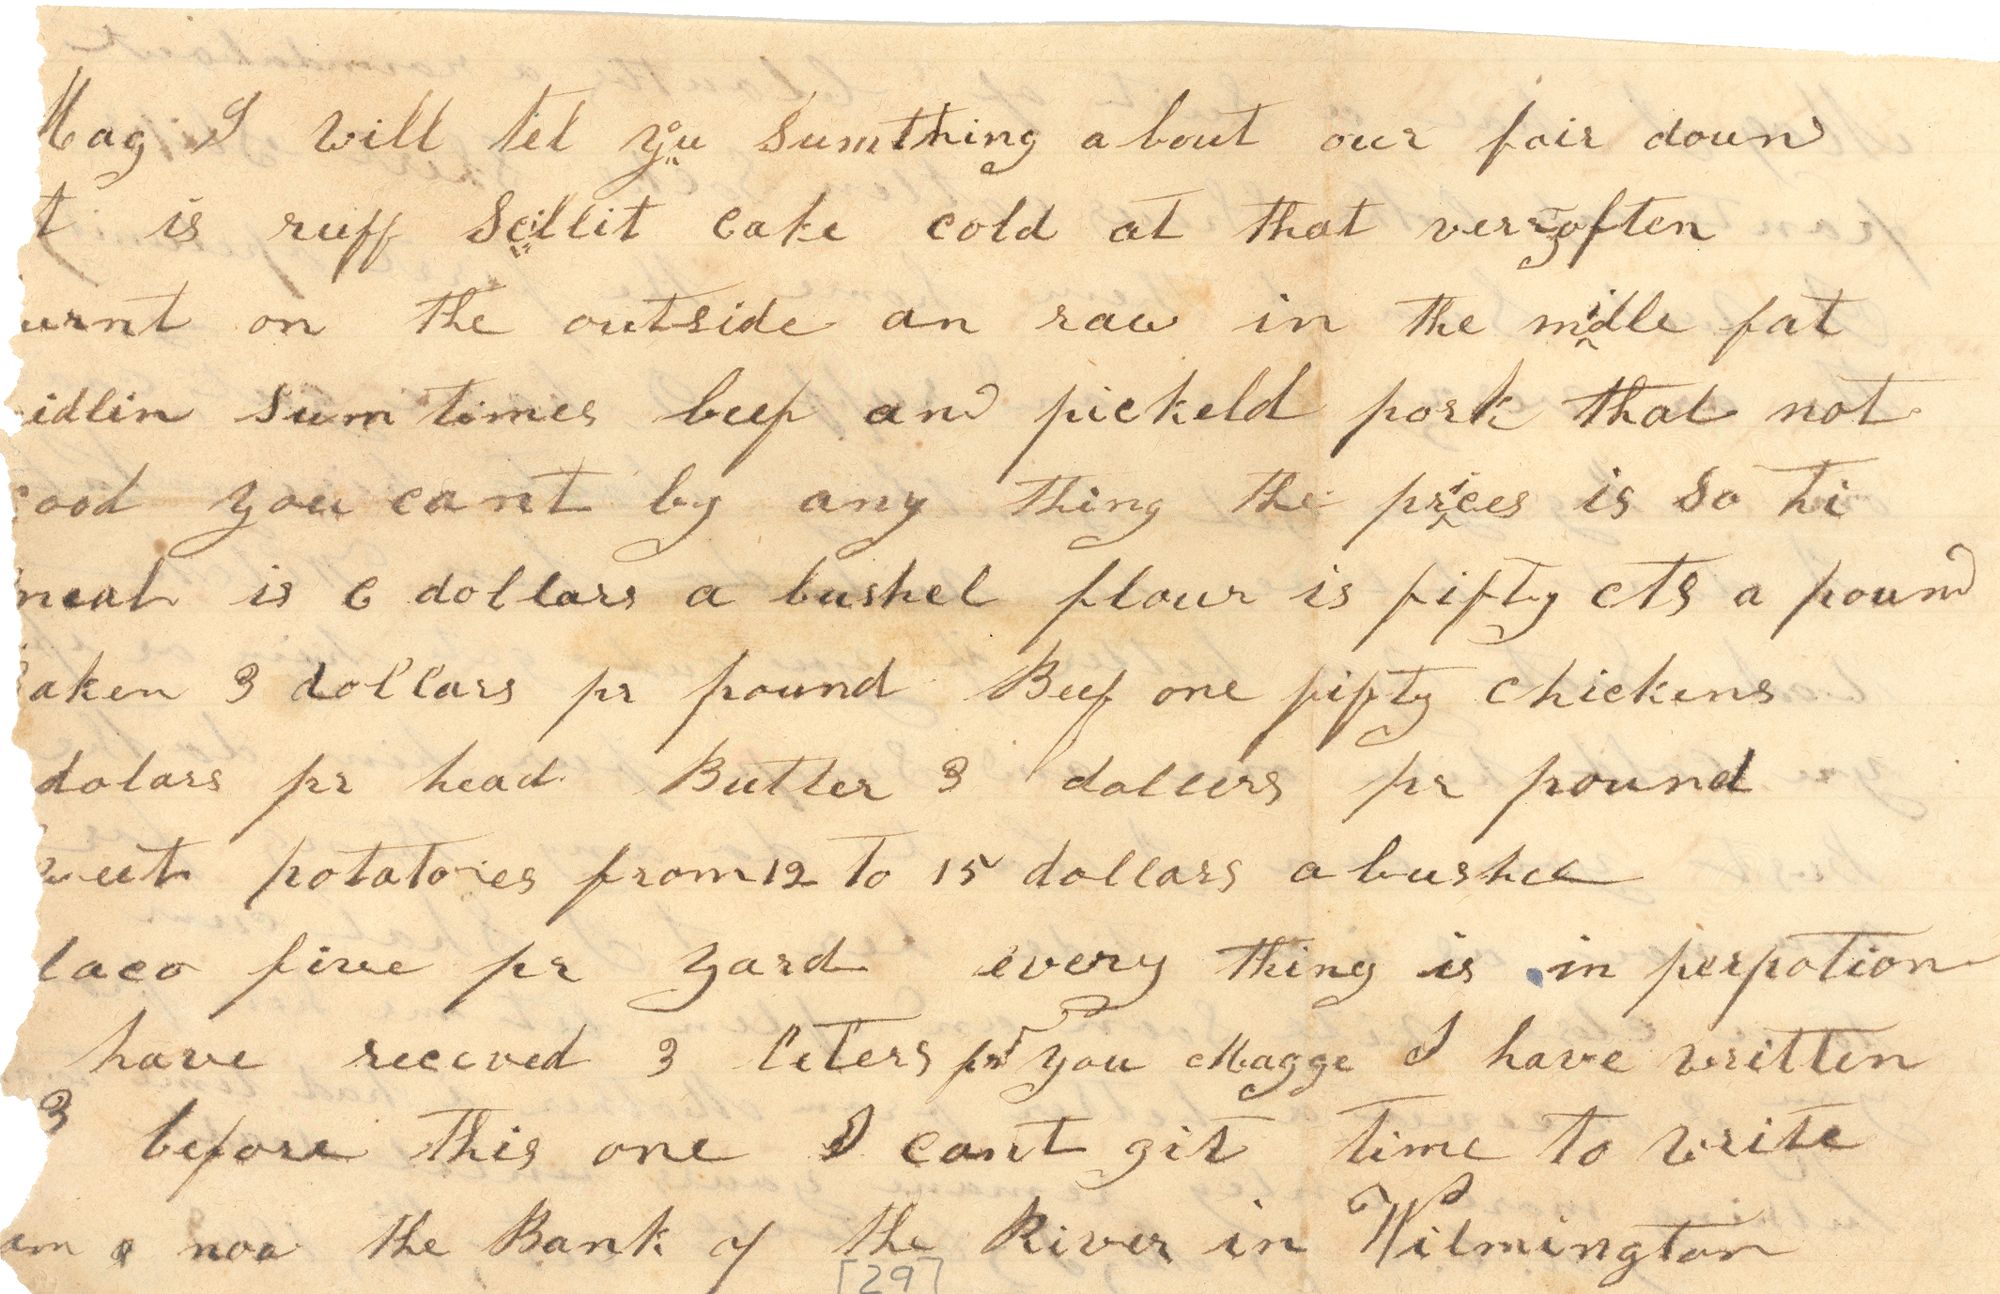 Mag I will tel you Sumthing about our fair doun
t is ruff Scillit cake cold at that verry often
urnt on the outside an raw in the midle fat
idlin Sum times beef and pickeld pork that not
ood you cant by any thing the prices is So hi
meal is 6 dollars a bushel flour is fifty cts a pound
aken 3 dollars pr pound Beef one fifty chickens
dolars pr head Butter 3 dollers pr pound
weet potatoies from 12 to 15 dollars a bushel
baco five pr yard every thing is in perpotion
have recieved 3 leters pr you Magge I have written
3 before this one I cant git time to write
am noa the Bank of the River in Wilmington
[29]